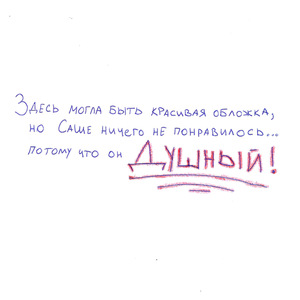 Здесь могла быть красивая обложка,
но Саше ничего не понравилось...
потому что он ДУШНЫЙ!